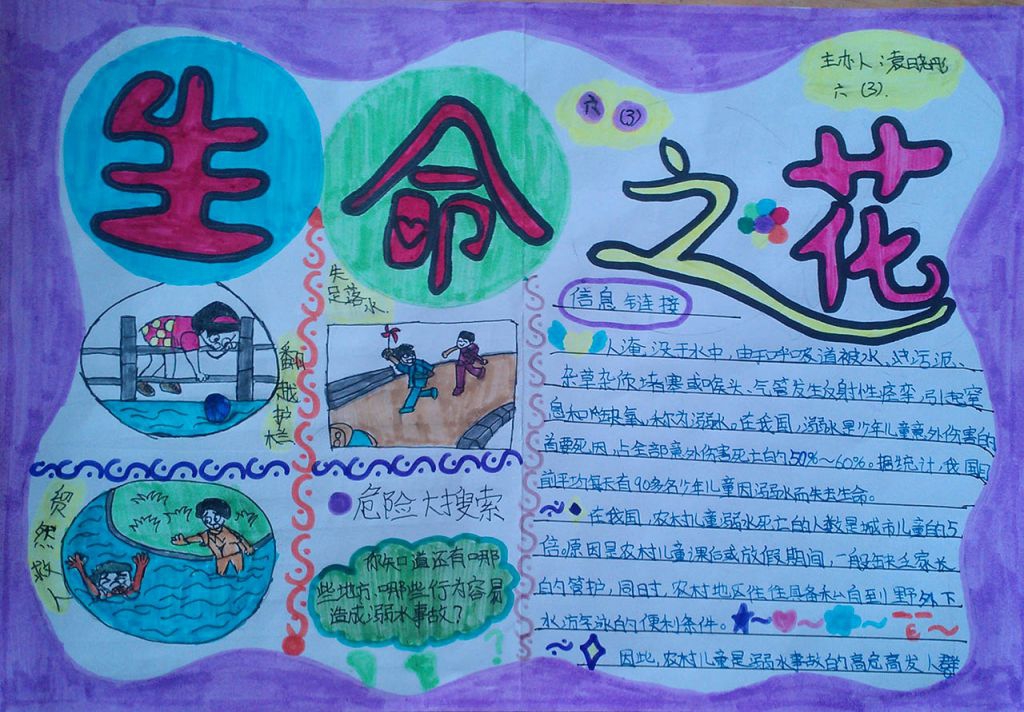 生命之花
主办人：袁晓彤
六（3）.
六（3）
失
足落
水.
翻越护栏
贸然救人
危险大搜索
你知道还有哪
些地方.哪些行为容易
造成溺水事故？
信息链接
人淹没于水中，由于呼吸道被水、污泥、
杂草杂质堵塞或喉头、气管发生反射性痉挛，引起窒
息和缺氧，称为溺水。在我国，溺水是少年儿童意外伤害的
首要死因，占全部意外伤害死亡的50%～60%。据统计，我国目
前平均每天有90多名少年儿童因溺水而失去生命。
在我国，农村儿童溺水死亡的人数是城市儿童的5
倍。原因是农村儿童课后或放假期间，一般缺乏家长
的管护，同时，农村地区往往具备私自到野外下
水游学泳的便利条件。
因此，农村儿童是溺水事故的高危高发人群